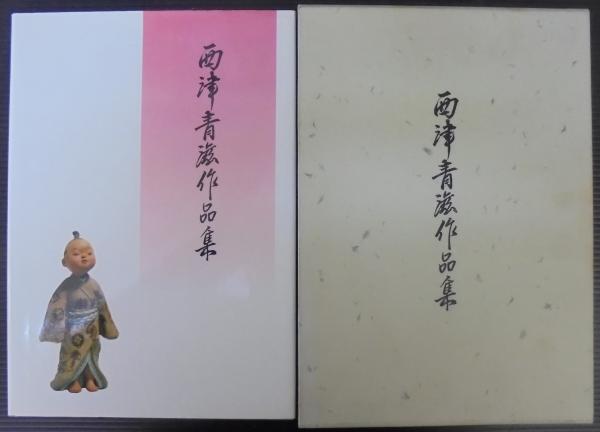 西津青滋作品集
西津青滋作品集